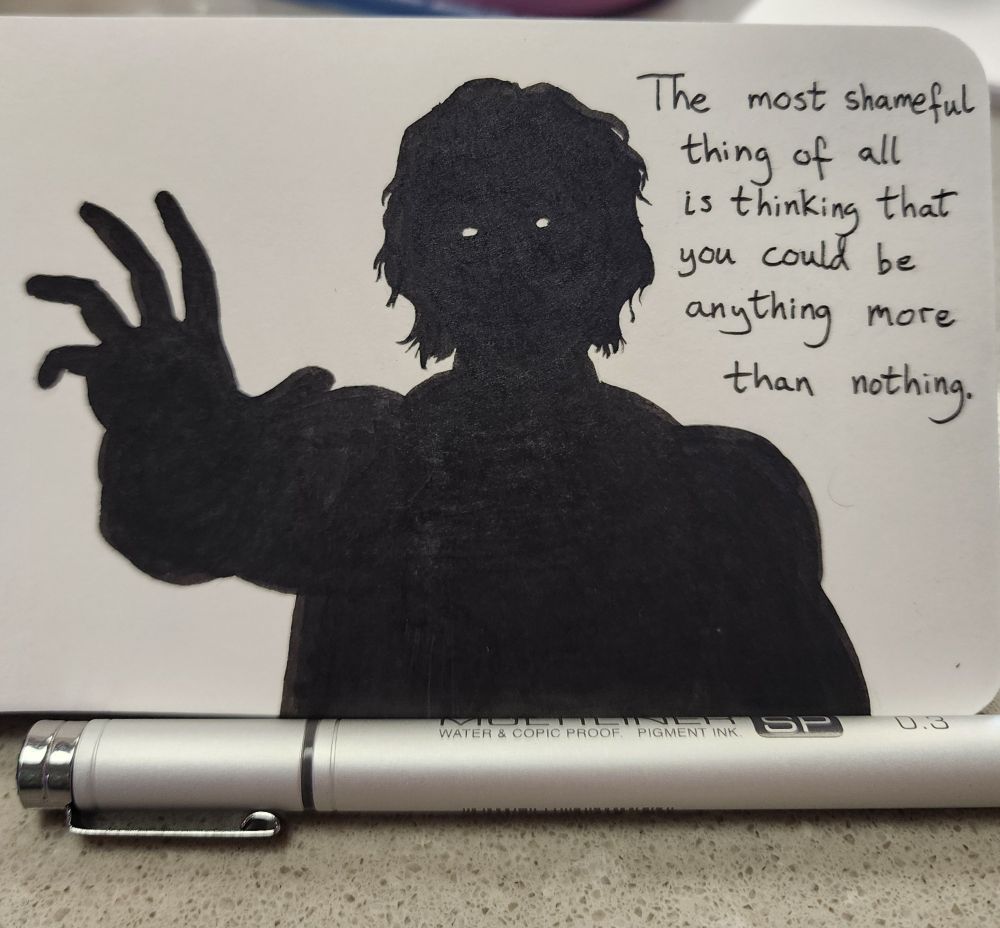 The most shameful
thing of all
is thinking that
you could be
anything more
than nothing.
MULTILINER SP 0.3
WATER & COPIC PROOF. PIGMENT INK.